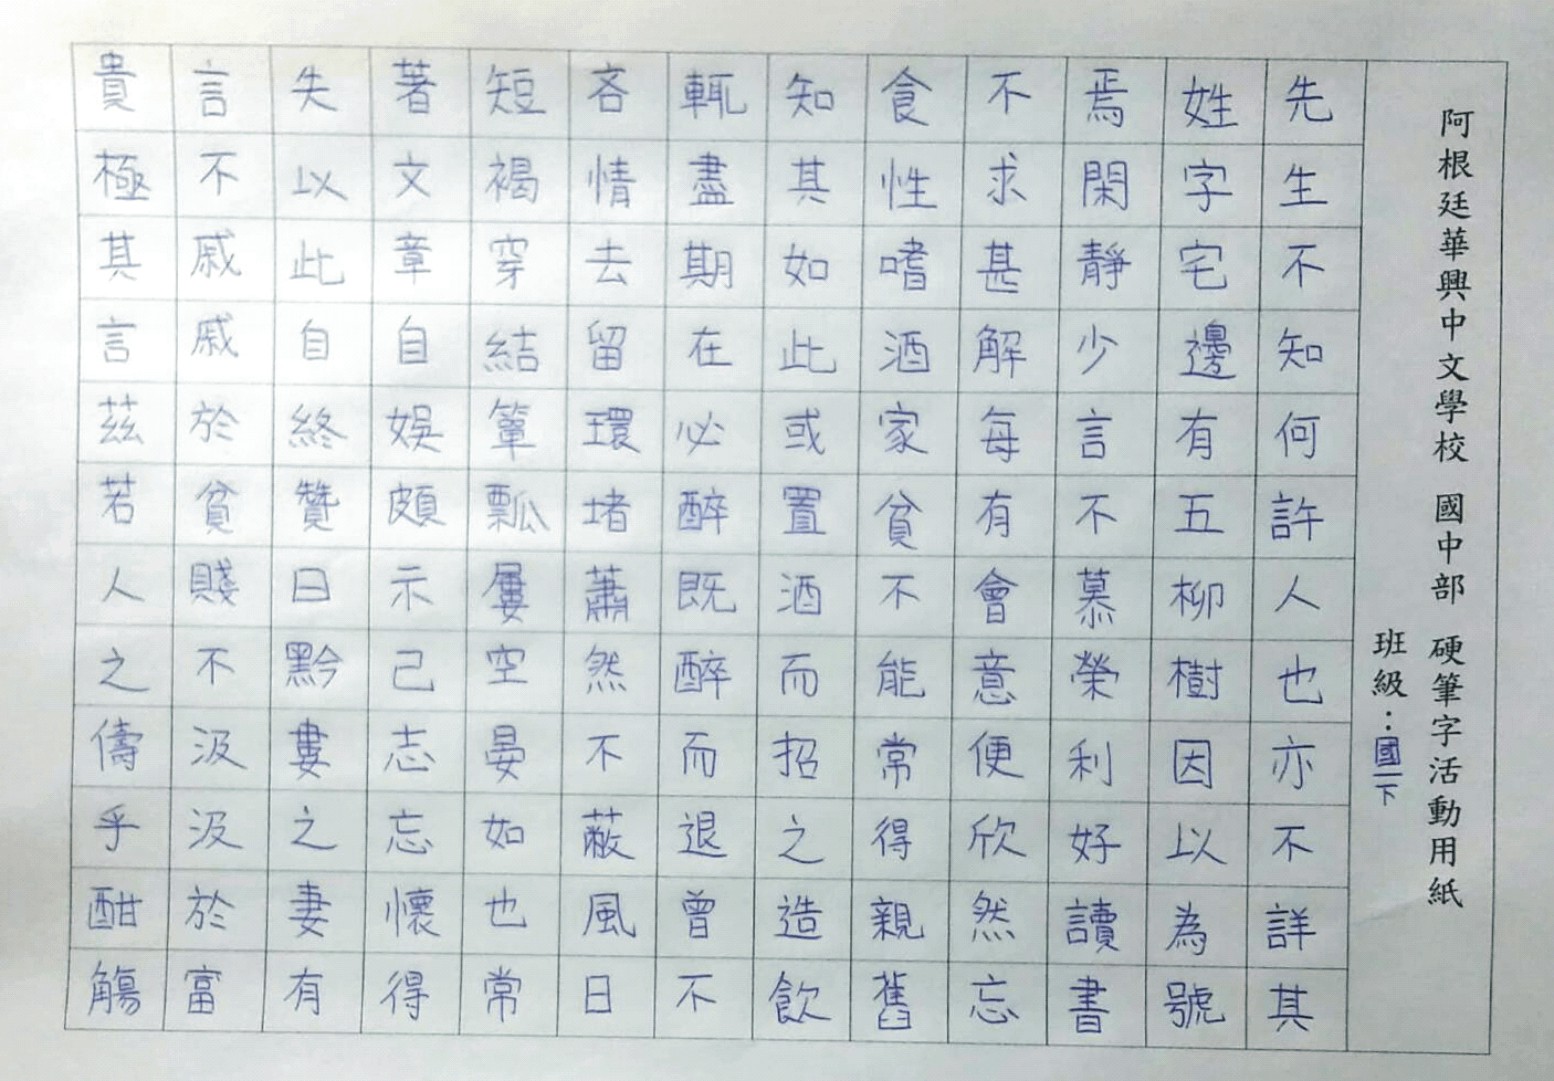 阿根廷華興中文學校 國中部 硬筆字活動用紙
班級：國一下
先生不知何許人也亦不詳其
姓字宅邊有五柳樹因以為號
焉閑靜少言不慕榮利好讀書
不求甚解每有會意便欣然忘
食性嗜酒家貧不能常得親舊
知其如此或置酒而招之造飲
輒盡期在必醉既醉而退曾不
吝情去留環堵蕭然不蔽風日
短褐穿結簞瓢屢空晏如也常
著文章自娛頗示己志忘懷得
失以此自終贊曰黔婁之妻有
言不戚戚於貧賤不汲汲於富
貴極其言茲若人之儔乎酣觴